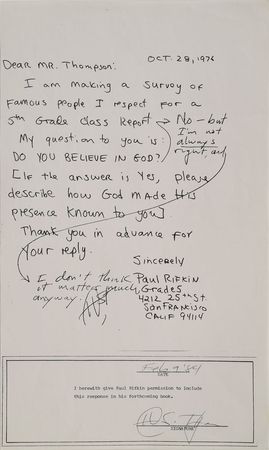 OCT. 28, 1976
Dear MR. Thompson:
I am making a survey of
famous people I respect for a
5th Grade Class Report
No – but
I'm not
always
right, and
My question to you is:
DO YOU BELIEVE IN GOD?
[If the answer is Yes, please
describe how God made His
presence known to you].
Thank you in advance for
your reply.
Sincerely
Paul Rifkin
Grade 5
4212 25th St.
San Francisco
Calif 94114
I don't think
it matters much
anyway.
DATE
I herewith give Paul Rifkin permission to include
this response in his forthcoming book.
SIGNATURE